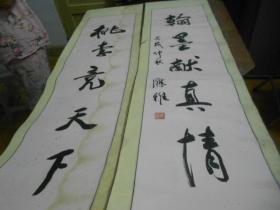 翰墨献真情
桃李竞天下